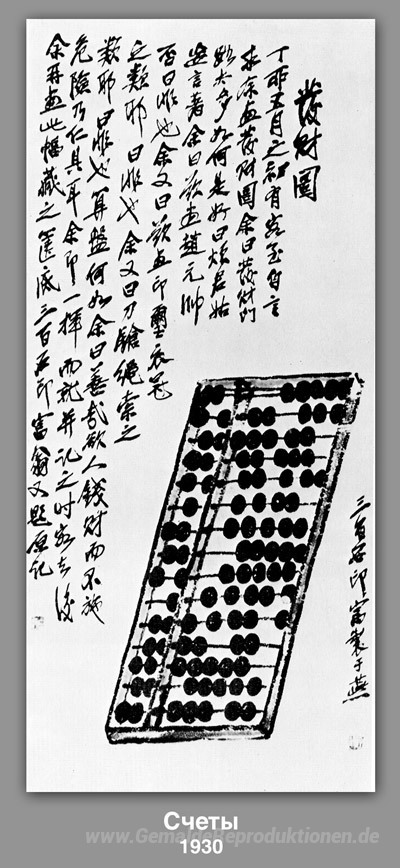 發財圖
丁卯五月之初有客至自言
求余畫發財圖余曰發財門
路太多如何是好曰煩君姑
妄言者余曰欲畫趙元帥
否曰非也余又曰欲畫印璽衣冠
之類耶曰非也余又曰刀鎗繩索之
類耶曰非也算盤何如余曰善哉欲人錢財而不施
危險乃仁具耳余即一揮而就并記之時客去後
余再畫此幅藏之篋底三百石印富翁又題原記
三百石印富製于燕
Счеты
1930
www.GemaldeReproduktionen.de